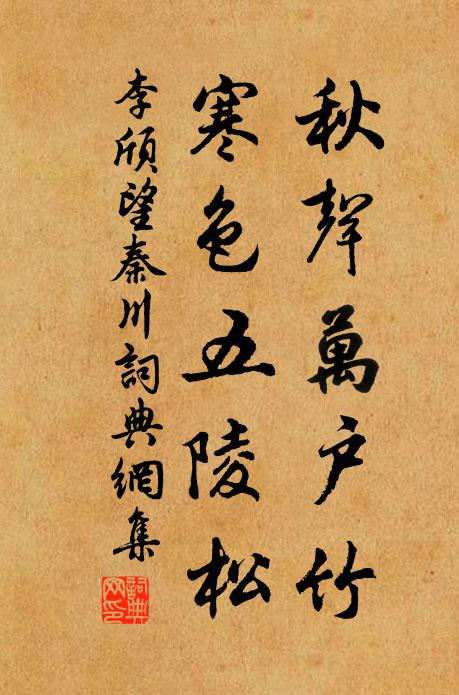 秋聲萬户竹
寒色五陵松
李頎望秦川詞典網集
詞典网印